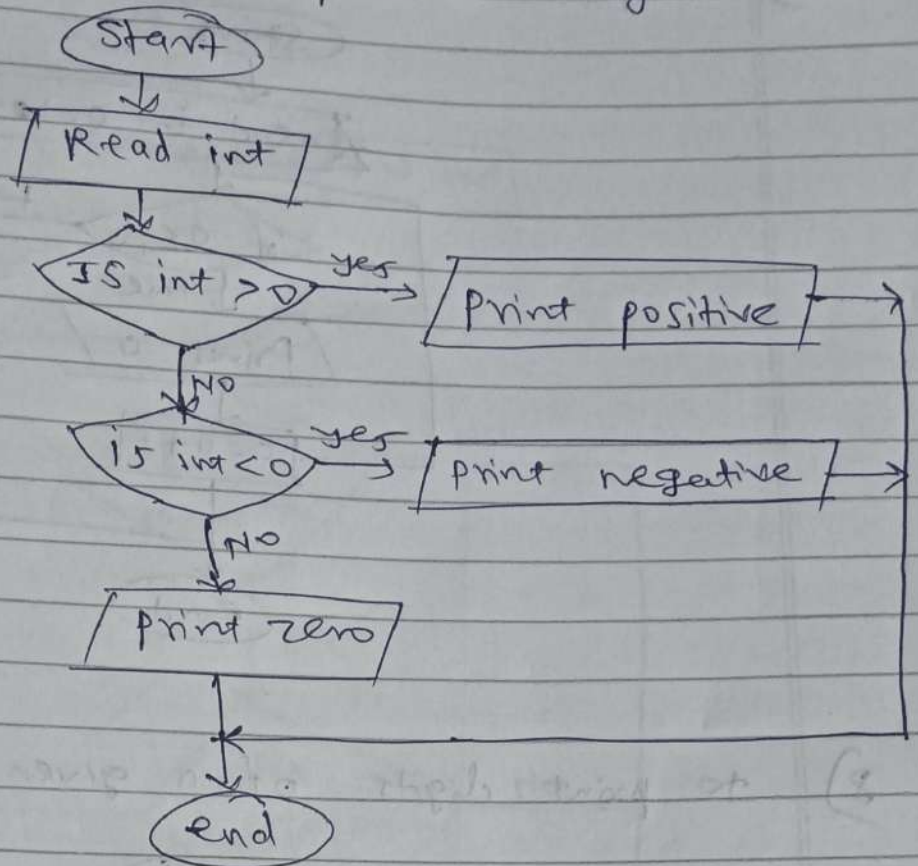 Start
Read int
IS int > 0
yes
Print positive
NO
is int < 0
yes
Print negative
NO
Print zero
end